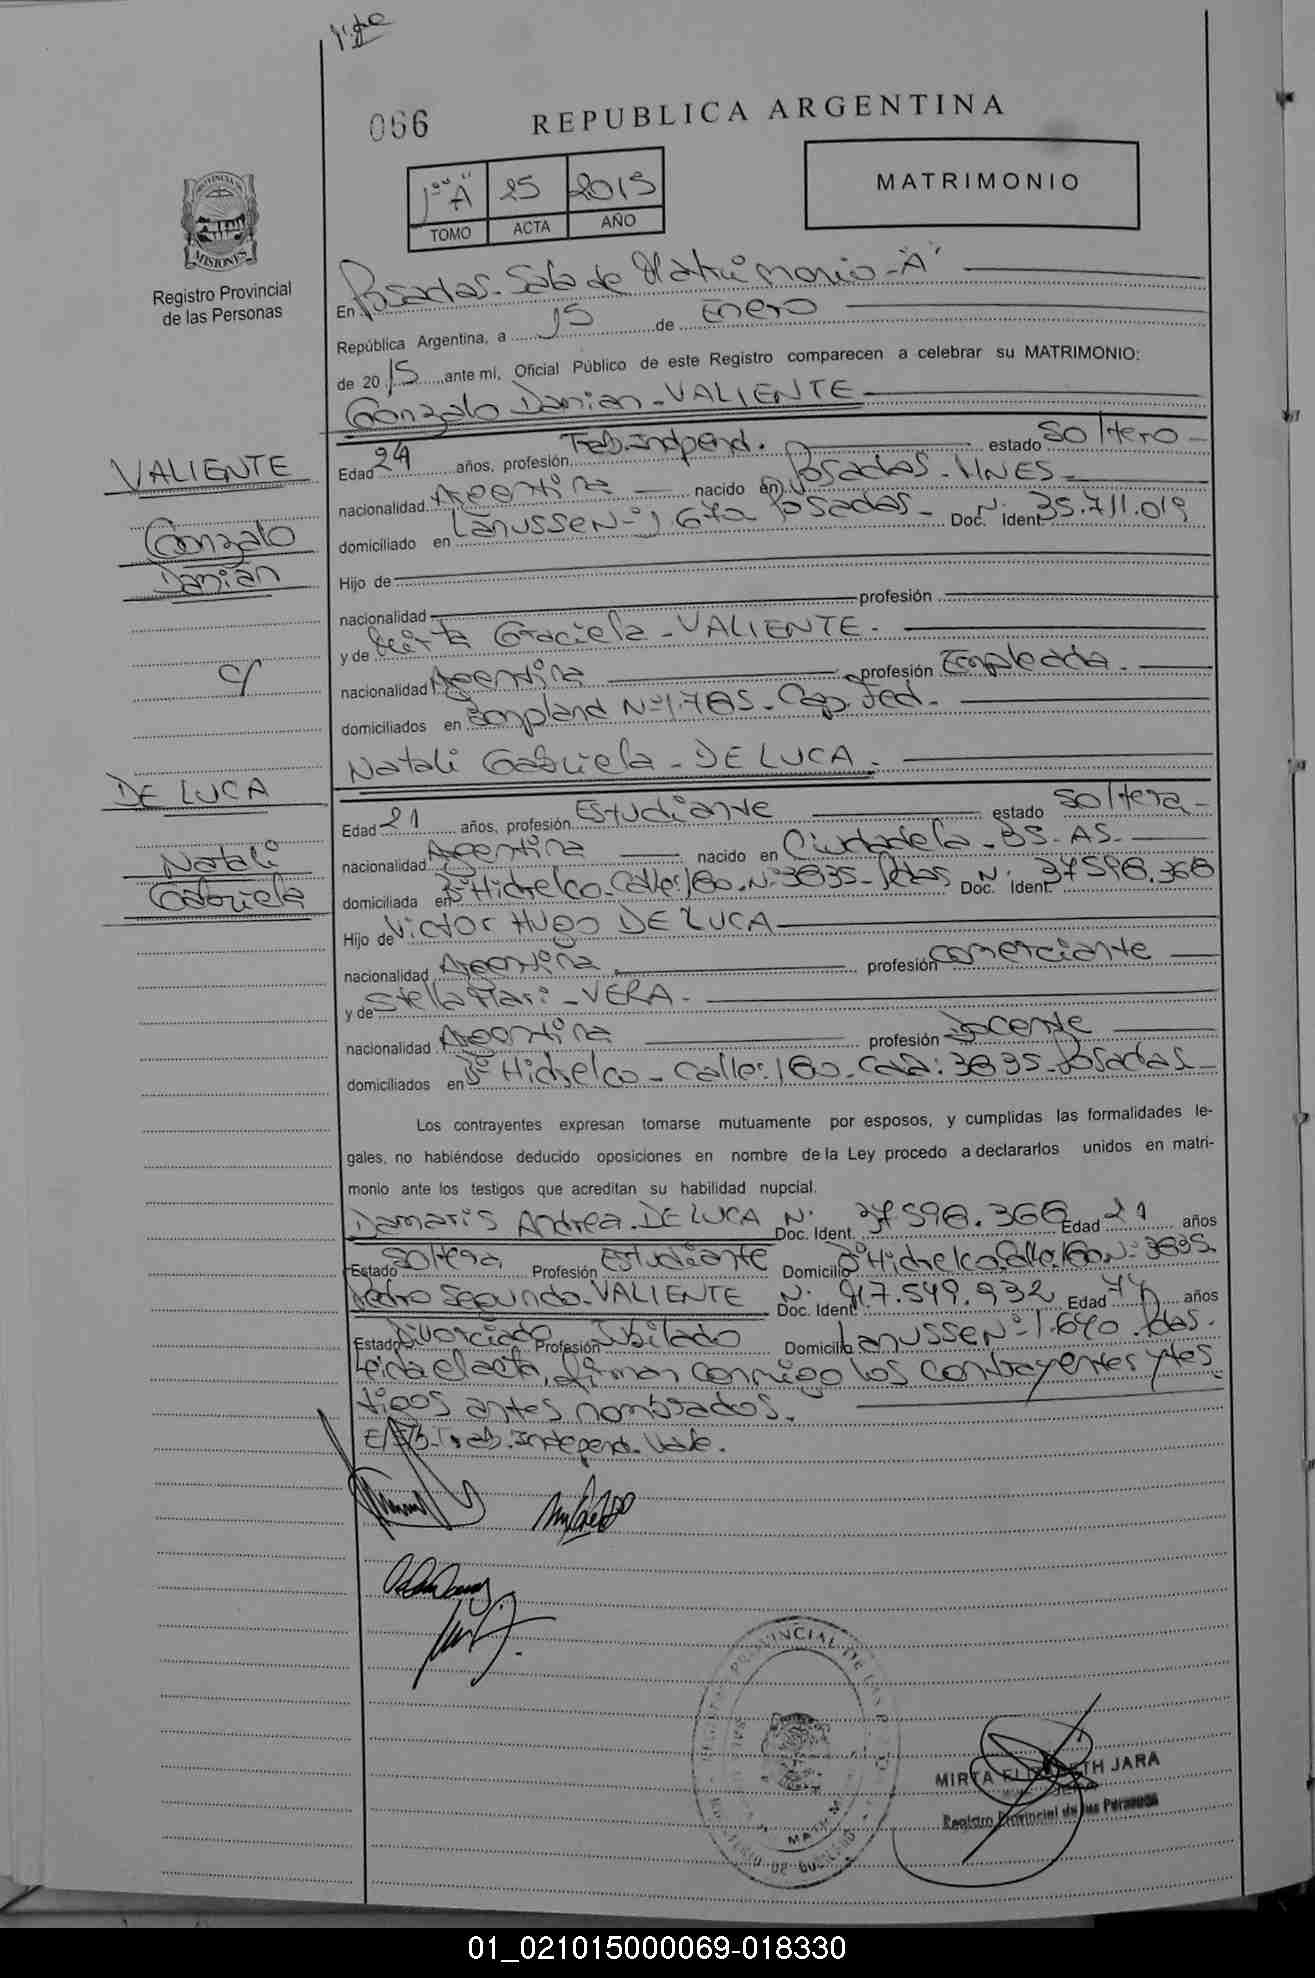 066
REPUBLICA ARGENTINA
MATRIMONIO
1º "A" 25 2015
TOMO ACTA AÑO
PROVINCIA DE
MISIONES
Registro Provincial
de las Personas
En Posadas - Sala de Matrimonio - "A"
República Argentina, a 15 de Enero
de 20 15 ante mí, Oficial Público de este Registro comparecen a celebrar su MATRIMONIO:
Gonzalo Damian - VALIENTE
VALIENTE
Gonzalo
Damián
c/
DE LUCA
Natali
Gabriela
Edad 24 años, profesión Trab. Independ. estado soltero -
nacionalidad Argentina nacido en Posadas - MNES
domiciliado en Lanusse Nº 1.670 Posadas - Doc. Ident. Nº 35.711.019
Hijo de
nacionalidad profesión
y de Mirta Graciela - VALIENTE -
nacionalidad Argentina profesión Empleada.
domiciliados en Bonpland Nº 1.785 - Cap. Fed.
Natali Gabriela - DE LUCA.
Edad 21 años, profesión Estudiante estado soltera -
nacionalidad Argentina nacido en Ciudadela - BS - AS -
domiciliada en Bº Hidrelco - Calle: 180 - Nº 3835 - Pdas Doc. Ident. Nº 37.598.368
Hijo de Victor Hugo DE LUCA
nacionalidad Argentina profesión comerciante
y de Stella Mari - VERA -
nacionalidad Argentina profesión Docente
domiciliados en Bº Hidrelco - Calle: 180 - Casa: 3835 - Posadas -
Los contrayentes expresan tomarse mutuamente por esposos, y cumplidas las formalidades le-
gales, no habiéndose deducido oposiciones en nombre de la Ley procedo a declararlos unidos en matri-
monio ante los testigos que acreditan su habilidad nupcial.
Damaris Andrea - DE LUCA Doc. Ident. Nº 37.598.366 Edad 21 años
Estado soltera Profesión Estudiante Domicilio Bº Hidrelco Calle 180 Nº 3835.
Pedro Segundo - VALIENTE Doc. Ident. Nº 7.549.932 Edad 77 años
Estado Divorciado Profesión Jubilado Domicilio Lanusse Nº 1.670. Pdas.
Leida el acta, firman conmigo los contrayentes y tes
tigos antes nombrados.
E/ Trab. Independ. Vale.
MIRTA ELIZABETH JARA
Registro Provincial de las Personas
01_021015000069-018330